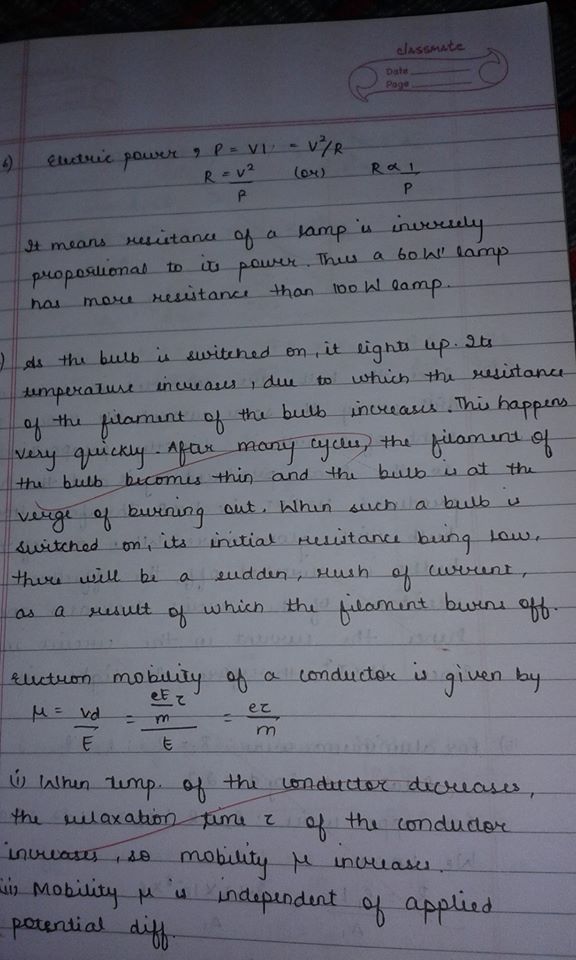 classmate
Date
Page
6) Electric power, P = VI = V²/R
R = V²/P (or) R ∝ 1/P
It means resistance of a lamp is inversely
proportional to its power. Thus a 60 W lamp
has more resistance than 100 W lamp.
) As the bulb is switched on, it lights up. Its
temperature increases, due to which the resistance
of the filament of the bulb increases. This happens
very quickly. After many cycles, the filament of
the bulb becomes thin and the bulb is at the
verge of burning out. When such a bulb is
switched on, its initial resistance being low,
there will be a sudden, rush of current,
as a result of which the filament burns off.
Electron mobility of a conductor is given by
μ = vd/E = (eE/m τ)/E = eτ/m
(i) When temp. of the conductor decreases,
the relaxation time τ of the conductor
increases, so mobility μ increases.
(ii) Mobility μ is independent of applied
potential diff.